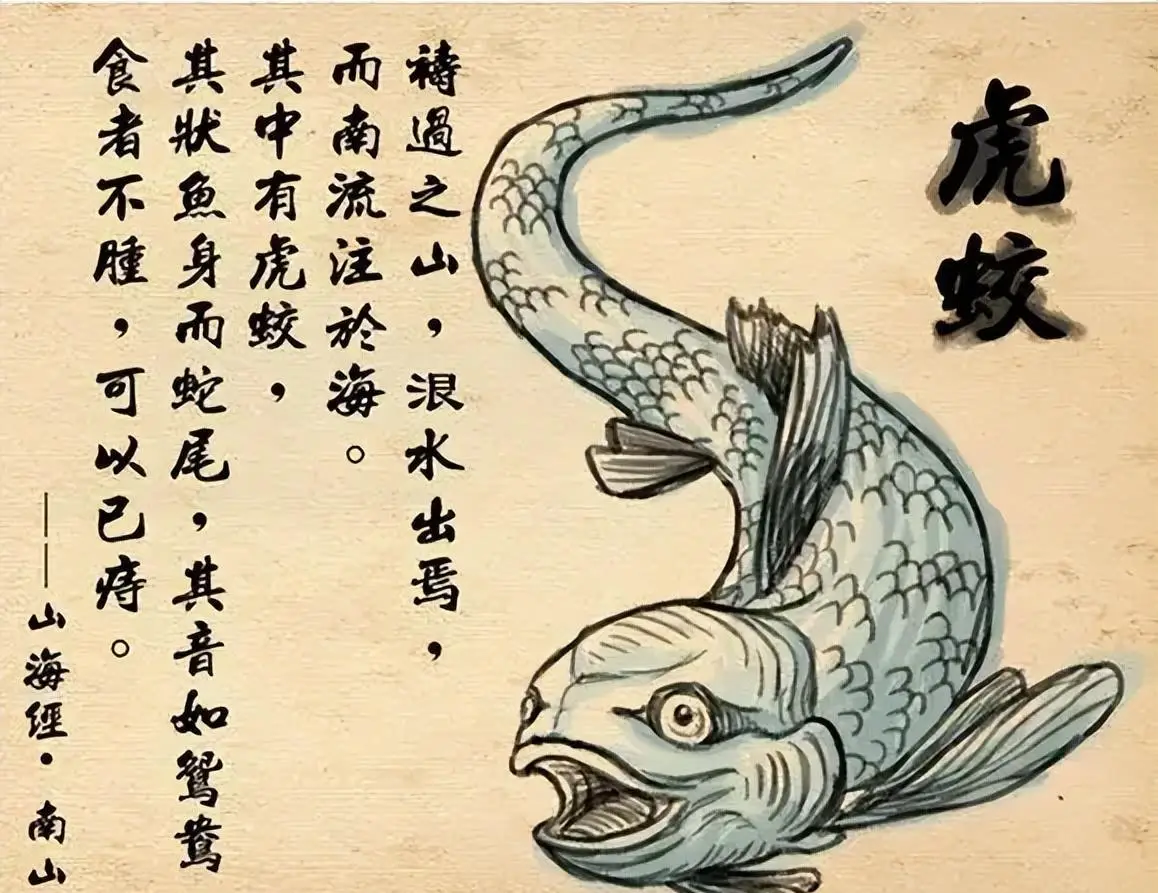 虎蛟
禱過之山，浪水出焉，
而南流注於海。
其中有虎蛟，
其狀魚身而蛇尾，其音如鴛鴦
食者不腫，可以已痔。
——山海經·南山